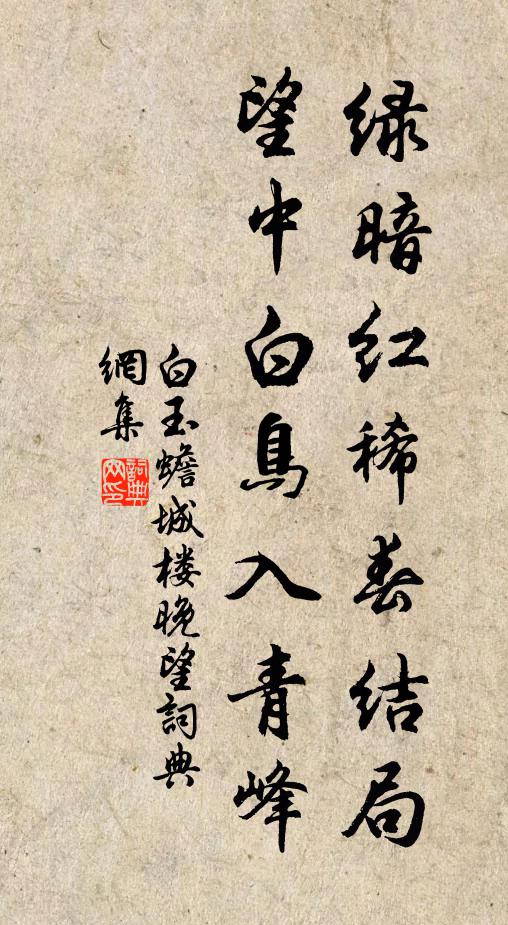 绿暗红稀春结局
望中白鳥入青峰
白玉蟾城楼晚望詞典
網集
詞典
网印